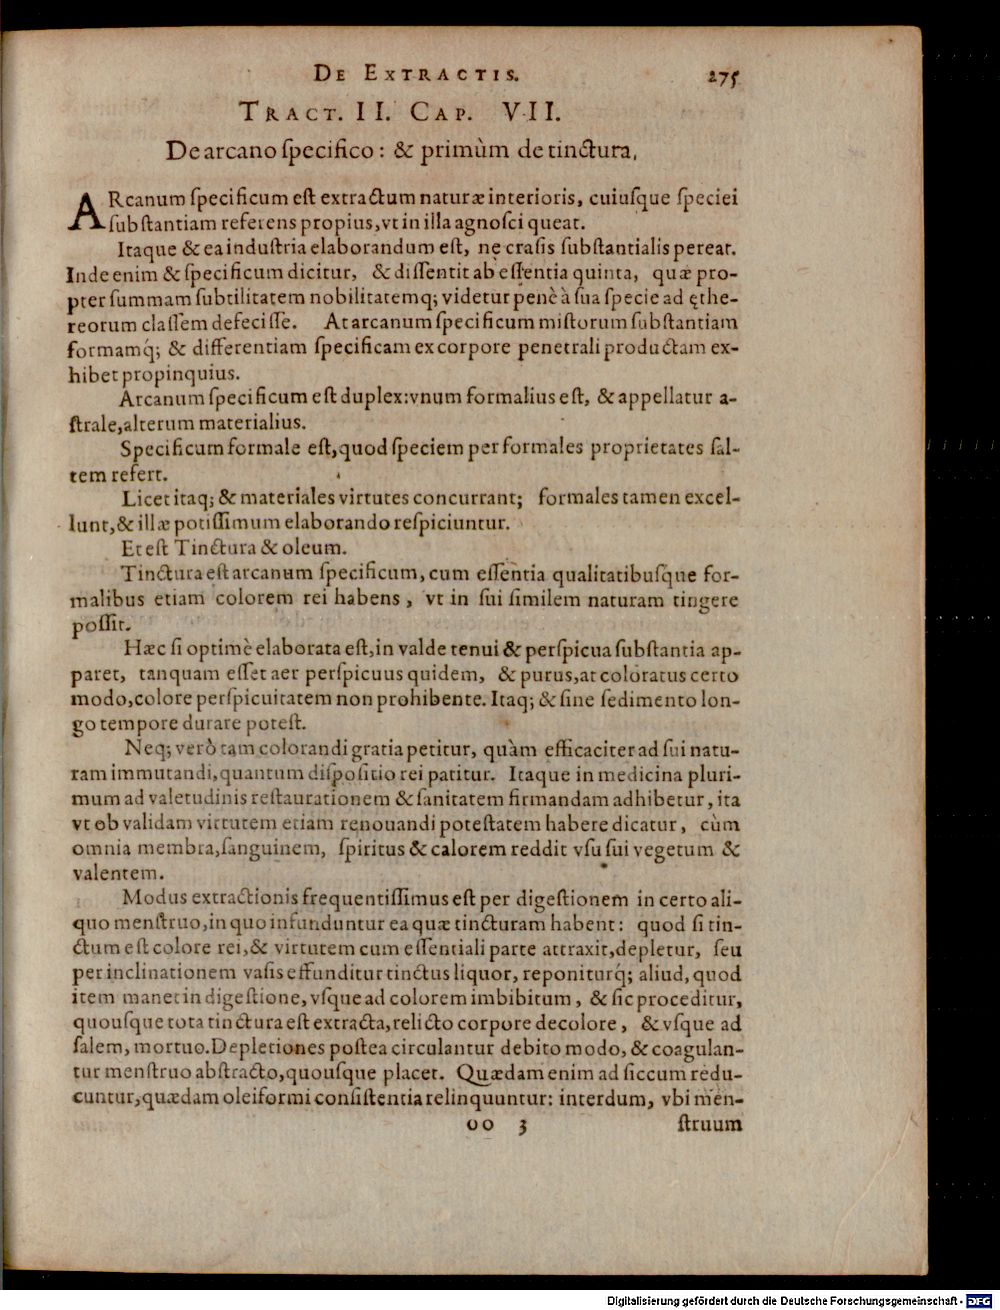 DE EXTRACTIS. 275
TRACT. II. CAP. VII.
De arcano ſpecifico: & primùm de tinctura,
ARcanum ſpecificum eſt extractum naturæ interioris, cuiuſque ſpeciei
ſubſtantiam referens propius, vt in illa agnoſci queat.
Itaque & ea induſtria elaborandum eſt, ne craſis ſubſtantialis pereat.
Inde enim & ſpecificum dicitur, & diſſentit ab eſſentia quinta, quæ pro-
pter ſummam ſubtilitatem nobilitatemq; videtur penè à ſua ſpecie ad ęthe-
reorum claſſem defeciſſe. At arcanum ſpecificum miſtorum ſubſtantiam
formamq́; & differentiam ſpecificam ex corpore penetrali productam ex-
hibet propinquius.
Arcanum ſpecificum eſt duplex: vnum formalius eſt, & appellatur a-
ſtrale, alterum materialius.
Specificum formale eſt, quod ſpeciem per formales proprietates ſal-
tem refert.
Licet itaq; & materiales virtutes concurrant; formales tamen excel-
lunt, & illæ potiſſimum elaborando reſpiciuntur.
Et eſt Tinctura & oleum.
Tinctura eſt arcanum ſpecificum, cum eſſentia qualitatibuſque for-
malibus etiam colorem rei habens, vt in ſui ſimilem naturam tingere
poſſit.
Hæc ſi optimè elaborata eſt, in valde tenui & perſpicua ſubſtantia ap-
paret, tanquam eſſet aer perſpicuus quidem, & purus, at coloratus certo
modo, colore perſpicuitatem non prohibente. Itaq; & ſine ſedimento lon-
go tempore durare poteſt.
Neq; verò tam colorandi gratia petitur, quàm efficaciter ad ſui natu-
ram immutandi, quantum diſpoſitio rei patitur. Itaque in medicina pluri-
mum ad valetudinis reſtaurationem & ſanitatem firmandam adhibetur, ita
vt ob validam virtutem etiam renouandi poteſtatem habere dicatur, cùm
omnia membra, ſanguinem, ſpiritus & calorem reddit vſu ſui vegetum &
valentem.
Modus extractionis frequentiſſimus eſt per digeſtionem in certo ali-
quo menſtruo, in quo infunduntur ea quæ tincturam habent: quod ſi tin-
ctum eſt colore rei, & virtutem cum eſſentiali parte attraxit, depletur, ſeu
per inclinationem vaſis effunditur tinctus liquor, reponiturq́; aliud, quod
item manet in digeſtione, vſque ad colorem imbibitum, & ſic proceditur,
quouſque tota tinctura eſt extracta, relicto corpore decolore, & vſque ad
ſalem, mortuo. Depletiones poſtea circulantur debito modo, & coagulan-
tur menſtruo abſtracto, quouſque placet. Quædam enim ad ſiccum redu-
cuntur, quædam oleiformi conſiſtentia relinquuntur: interdum, vbi men-
oo 3 ſtruum
Digitalisierung gefördert durch die Deutsche Forschungsgemeinschaft - DFG